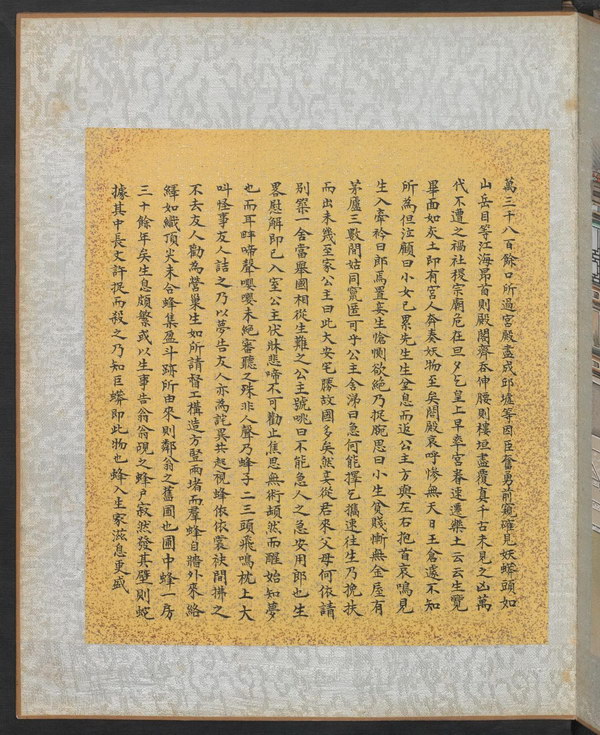 萬三千八百餘口所過宮殿盡成邱墟等因臣奮勇前窺確見妖蟒頭如
山岳目等江海昂首則殿閣齊吞伸腰則樓垣盡覆真千古未見之凶萬
代不遭之禍社稷宗廟危在旦夕乞皇上早率宮眷速遷樂土云云生覽
畢面如灰土即有宮人奔奏妖物至矣闔殿哀呼慘無天日王倉遽不知
所為但泣顧曰小女已累先生生坌息而返公主方與左右抱首哀鳴見
生入牽衿曰郎焉置妾生愴惻欲絶乃捉腕思曰小生貧賤慚無金屋有
茅廬三數間姑同竄匿可乎公主含涕曰急何能擇乞攜速往生乃挽扶
而出未幾至家公主曰此大安宅勝故國多矣然妾從君來父母何依請
別築一舍當舉國相從生難之公主號咷曰不能急人之急安用郎也生
畧慰解即已入室公主伏牀悲啼不可勸止焦思無術頓然而醒始知夢
也而耳畔啼聲嚶嚶未絶審聽之殊非人聲乃蜂子二三頭飛鳴枕上大
叫怪事友人詰之乃以夢告友人亦為詫異共起視蜂依依裳袂間拂之
不去友人勸為營巢生如所請督工構造方竪兩堵而羣蜂自牆外來絡
繹如織頂尖未合蜂集盈斗跡所由來則鄰翁之舊圃也圃中蜂一房
三十餘年矣生息頗繁或以生事告翁翁覘之蜂户寂然發其壁則蛇
據其中長丈許捉而殺之乃知巨蟒即此物也蜂入生家滋息更盛